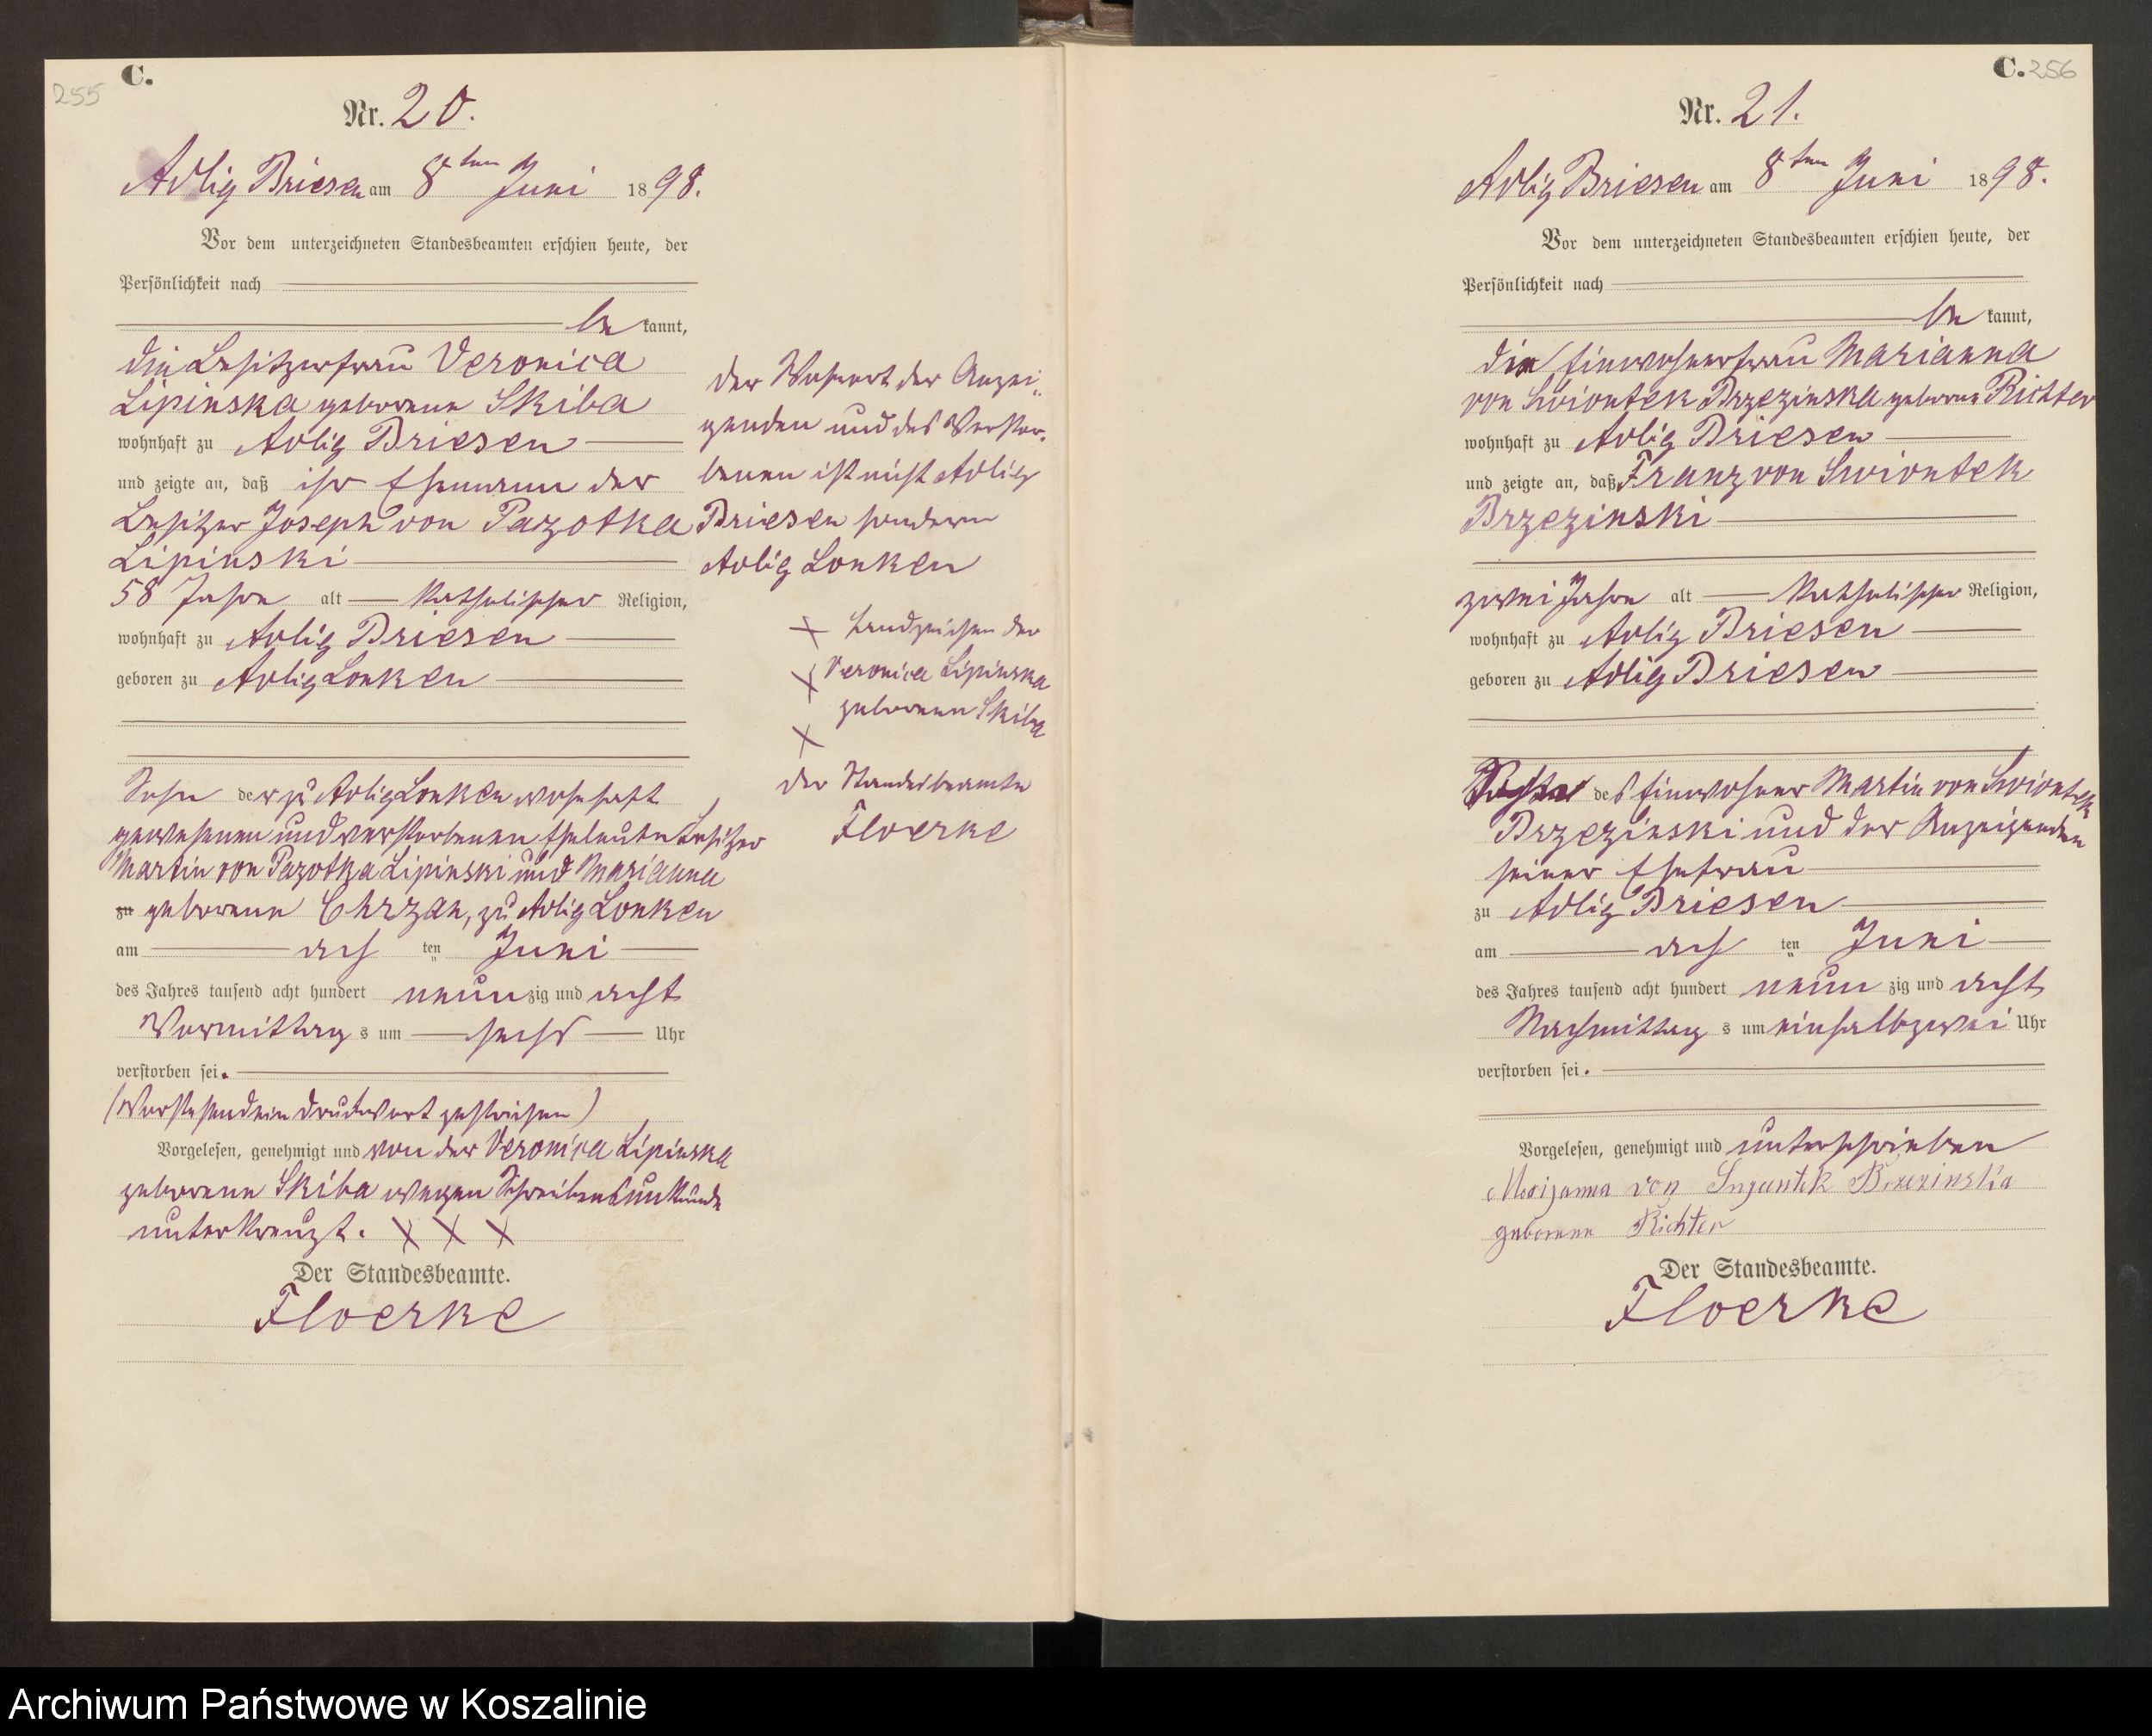 255
C.
Nr. 20.
Adlig Briesen am 8ten Juni 1898.
Vor dem unterzeichneten Standesbeamten erschien heute, der
Persönlichkeit nach
be kannt,
die Besitzerfrau Veronica
Lipinska geborene Skiba
wohnhaft zu Adlig Briesen
und zeigte an, daß ihr Ehemann der
Besitzer Joseph von Pazotka
Lipinski
58 Jahre alt katholischer Religion,
wohnhaft zu Adlig Briesen
geboren zu Adlig Lonken
Sohn der zu Adlig Lonken wohnhaft
gewesenen und verstorbenen Eheleute Besitzer
Martin von Pazotka Lipinski und Marianna
zu geborene Chrzan, zu Adlig Lonken
am ach ten Juni
des Jahres tausend acht hundert neun zig und acht
Vormittag s um sechs Uhr
verstorben sei.
(Vorstehend ein Druckwort gestrichen)
Vorgelesen, genehmigt und von der Veronica Lipinska
geborene Skiba wegen Schreibensunkunde
unterkreuzt. X X X
Der Standesbeamte.
Floerke
Der Wohnort der Anzei-
genden und des Verstor-
benen ist nicht Adlig
Briesen sondern
Adlig Lonken
X Handzeichen der
X Veronica Lipinska
geborenen Skiba
X
Der Standesbeamte
Floerke
C. 256
Nr. 21.
Adlig Briesen am 8ten Juni 1898.
Vor dem unterzeichneten Standesbeamten erschien heute, der
Persönlichkeit nach
be kannt,
die Einwohnerfrau Marianna
von Swiontek Brzezinska geborene Richter
wohnhaft zu Adlig Briesen
und zeigte an, daß Franz von Swiontek
Brzezinski
zwei Jahre alt katholischer Religion,
wohnhaft zu Adlig Briesen
geboren zu Adlig Briesen
des Einwohner Martin von Swiontek
Brzezinski und der Anzeigenden
seiner Ehefrau
zu Adlig Briesen
am ach ten Juni
des Jahres tausend acht hundert neun zig und acht
Nachmittag s um einhalbzwei Uhr
verstorben sei.
Vorgelesen, genehmigt und unterschrieben
Marijanna von Brzezinska
geborene Richter
Der Standesbeamte.
Floerke
Archiwum Państwowe w Koszalinie